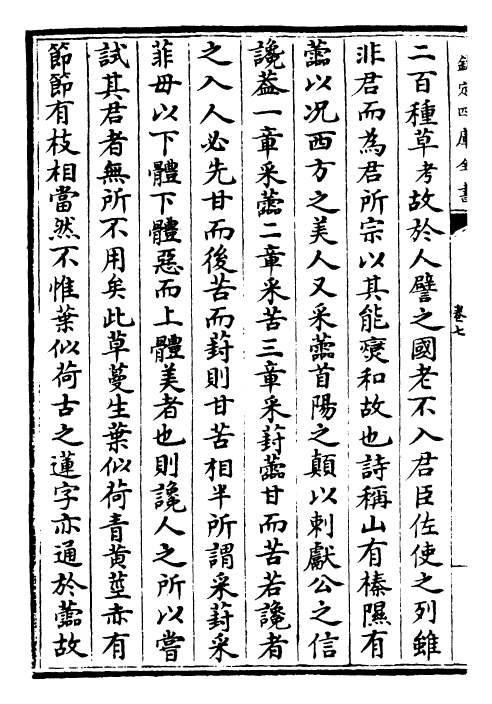 欽定四庫全書
卷七
二百種草考故於人譬之國老不入君臣佐使之列雖
非君而為君所宗以其能燮和故也詩稱山有榛隰有
蘦以况西方之美人又采蘦首陽之顛以刺獻公之信
讒葢一章采蘦二章采苦三章采葑蘦甘而苦若讒者
之入人必先甘而後苦而葑則甘苦相半所謂采葑采
菲毋以下體下體惡而上體美者也則讒人之所以嘗
試其君者無所不用矣此草蔓生葉似荷青黄莖赤有
節節有枝相當然不惟葉似荷古之蓮字亦通於蘦故